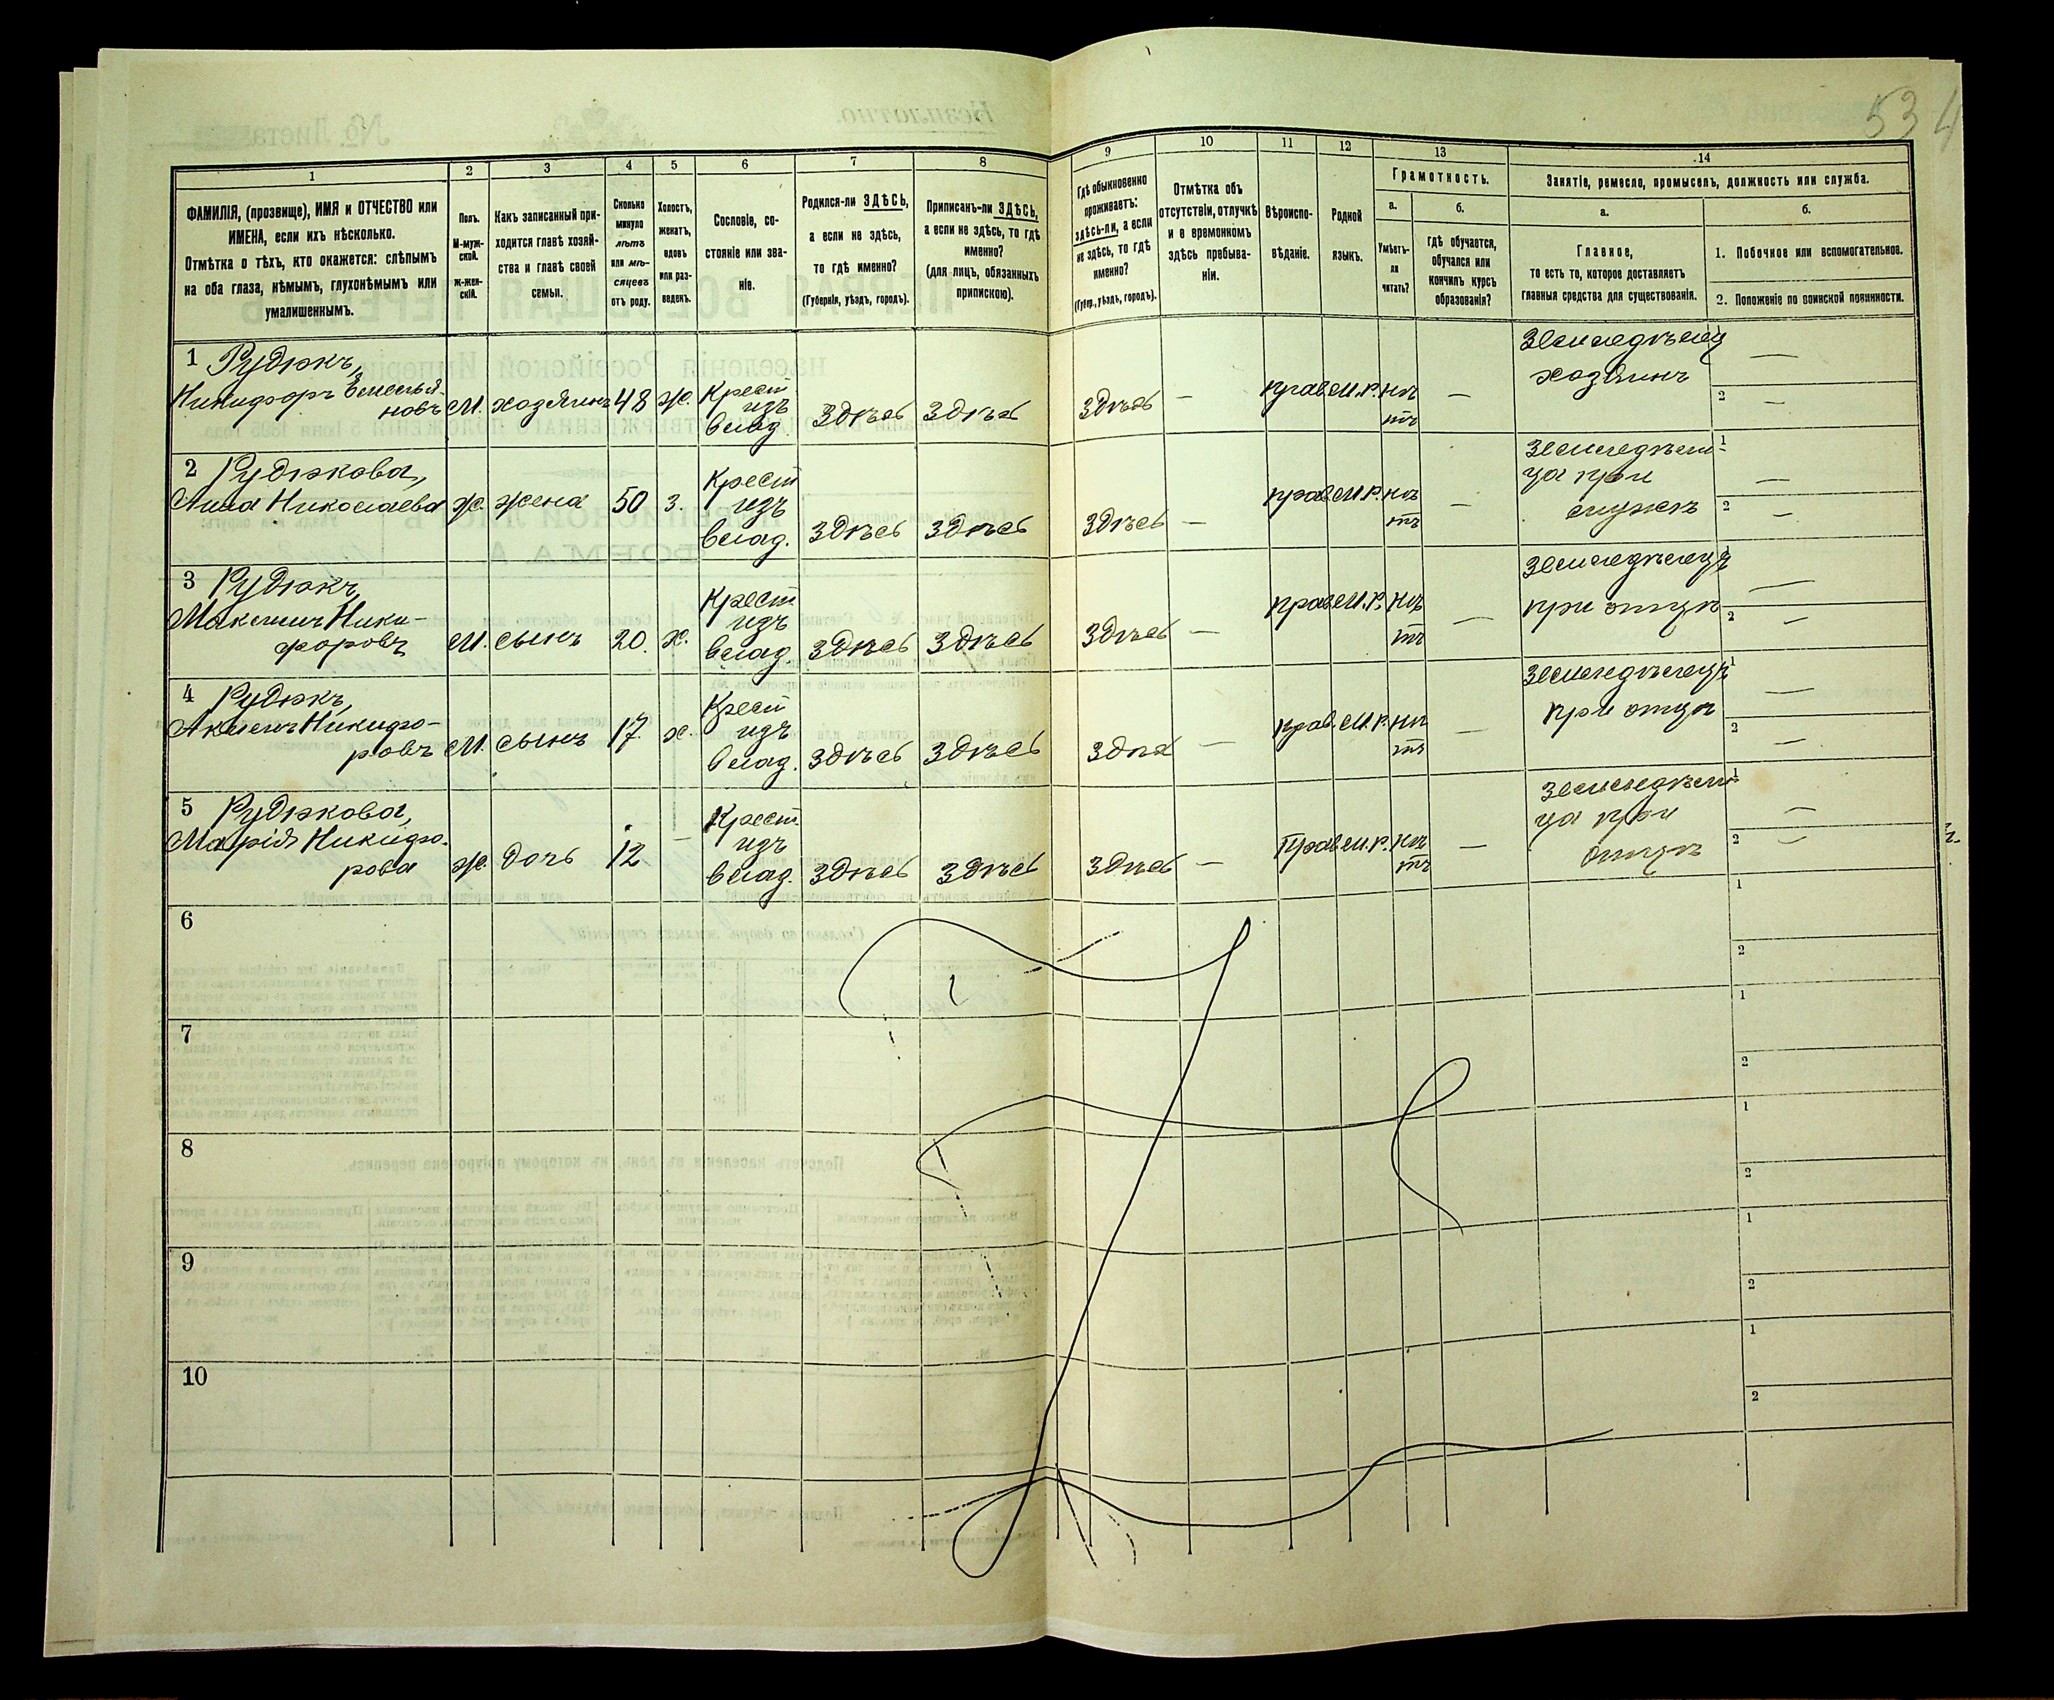 534
1
2
3
4
5
6
7
8
9
10
11
12
13
14
ФАМИЛІЯ, (прозвище), ИМЯ и ОТЧЕСТВО или
ИМЕНА, если ихъ нѣсколько.
Отмѣтка о тѣхъ, кто окажется: слѣпымъ
на оба глаза, нѣмымъ, глухонѣмымъ или
умалишеннымъ.
Полъ.
М-муж-
ской.
Ж-жен-
скій.
Какъ записанный при-
ходится главѣ хозяй-
ства и главѣ своей
семьи.
Сколько
минуло
лѣтъ
или мѣ-
сяцевъ
отъ роду.
Холостъ,
женатъ,
вдовъ
или раз-
веденъ.
Сословіе, со-
стояніе или зва-
ніе.
Родился-ли ЗДѢСЬ,
а если не здѣсь,
то гдѣ именно?
(Губернія, уѣздъ, городъ).
Приписанъ-ли ЗДѢСЬ,
а если не здѣсь, то гдѣ
именно?
(для лицъ, обязанныхъ
припискою).
Гдѣ обыкновенно
проживаетъ:
здѣсь-ли, а если
не здѣсь, то гдѣ
именно?
(Губер., уѣздъ, городъ).
Отмѣтка объ
отсутствіи, отлучкѣ
и о временномъ
здѣсь пребыва-
ніи.
Вѣроиспо-
вѣданіе.
Родной
языкъ.
Грамотность.
а.
Умѣетъ-
ли
читать?
б.
Гдѣ обучается,
обучался или
кончилъ курсъ
образованія?
Занятіе, ремесло, промыселъ, должность или служба.
а.
Главное,
то есть то, которое доставляетъ
главныя средства для существованія.
б.
1. Побочное или вспомогательное.
2. Положеніе по воинской повинности.
1 Рудюкъ,
Никифоръ Емелья-
новъ
М.
хозяинъ
48
ж.
Крест
изъ
влад.
Здѣсь
Здѣсь
Здѣсь
—
прав
М.Р.
нѣ
тъ
—
Земледѣлец
хозяинъ
1 —
2 —
2 Рудюкова,
Анна Николаева
ж.
жена
50
з.
Крест
изъ
влад.
Здѣсь
Здѣсь
Здѣсь
—
прав
М.Р.
нѣ
тъ
—
Земледѣли-
ца при
мужѣ
1 —
2 —
3 Рудюкъ,
Максимъ Ники-
форовъ
М.
сынъ
20.
х.
Крест
изъ
влад
Здѣсь
Здѣсь
Здѣсь
—
прав
М.Р.
нѣ
тъ
—
Земледѣлецъ
при отцѣ
1 —
2 —
4 Рудюкъ,
Никифо-
ровъ
М.
сынъ
17.
х.
Крест
изъ
влад.
Здѣсь
Здѣсь
—
прав.
М.Р.
нѣ
тъ
—
Земледѣлецъ
при отцѣ
1 —
2 —
5 Рудюкова,
Марія Никифо-
рова
ж.
дочь
12
—
Крест
изъ
влад.
Здѣсь
Здѣсь
Здѣсь
—
Прав
М.Р.
нѣ
тъ
—
Земледѣли-
ца при
отцѣ
1 —
2 —
6
1
2
7
1
2
8
1
2
9
1
2
10
1
2